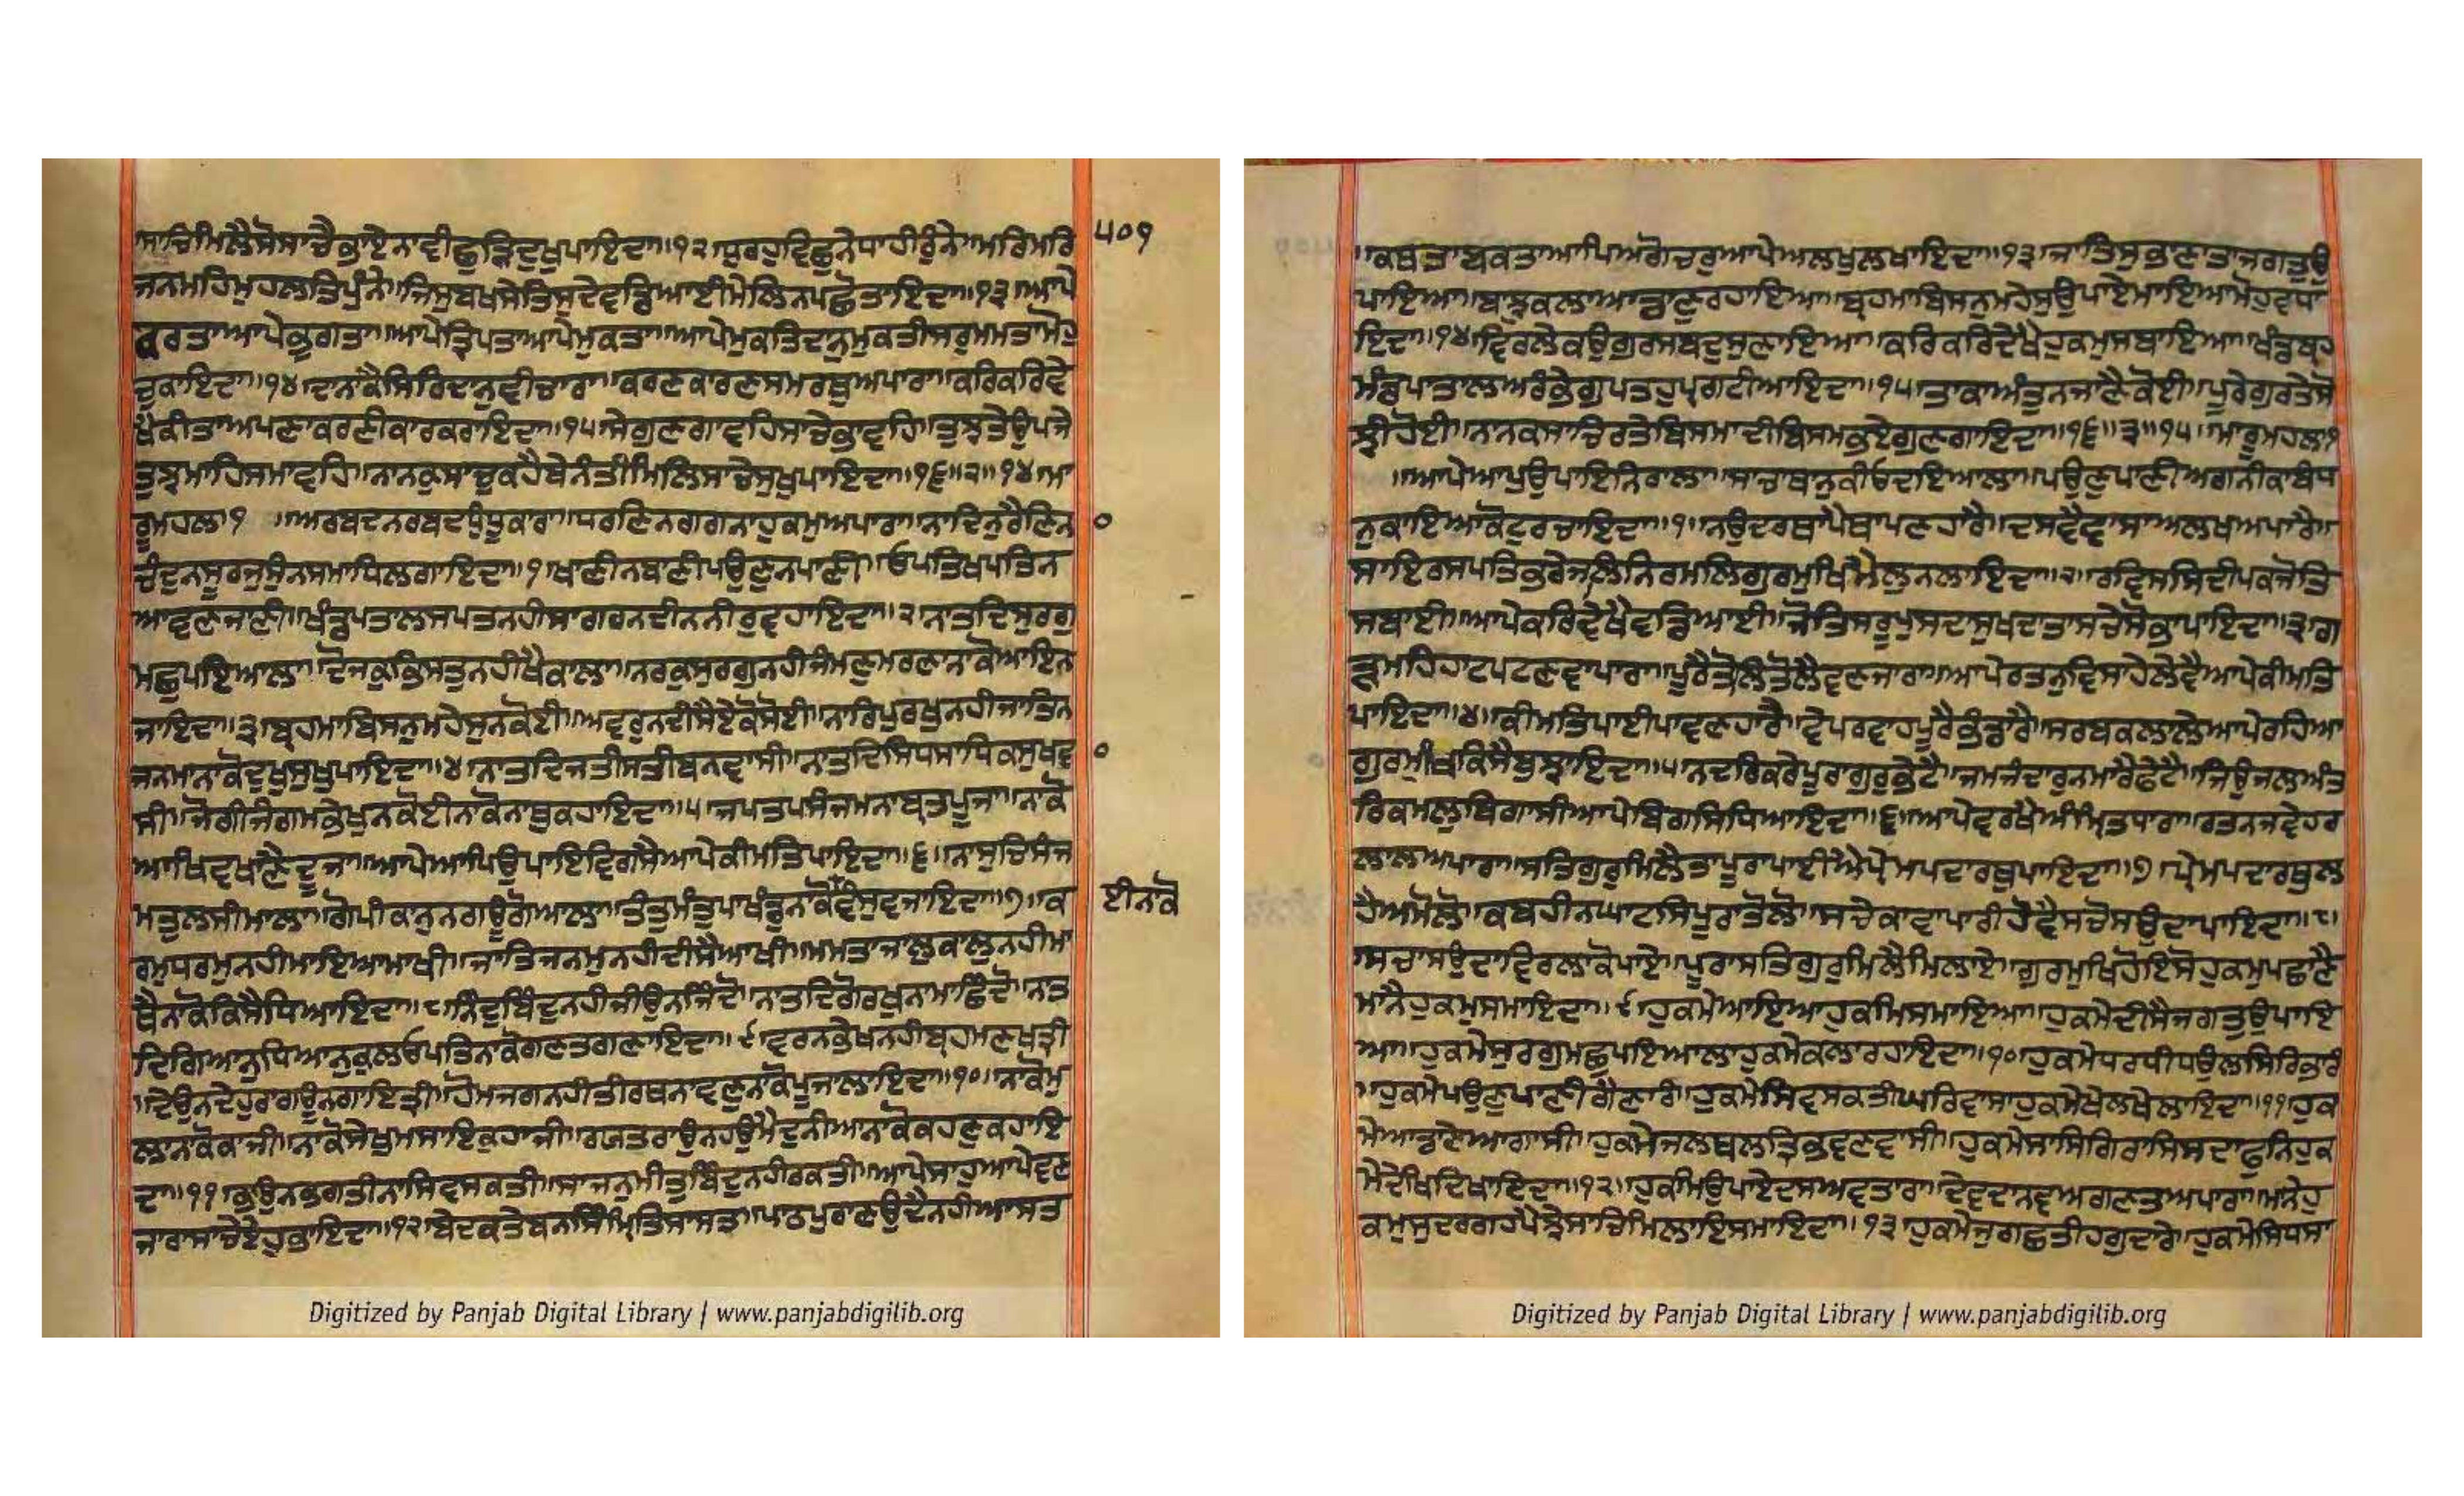 ਸਾਚਿਮਿਲੈਸੋਸਾਚੈਭਾਏਨਾਵੀਛੁੜਿਦੁਖੁਪਾਇਦਾ॥੧੨॥ਧੁਰਹੁਵਿਛੁਨੇਧਾਹੀਰੁੰਨੇ॥ਮਰਿਮਰਿ
੫੦੧
ਜਨਮਹਿਮੁਹਲਤਿਪੁੰਨੇ॥ਜਿਸੁਬਖਸੇਤਿਸੁਦੇਵਡਿਆਈਮੇਲਿਨਪਛੋਤਾਇਦਾ॥੧੩॥ਆਪੇ
ਕਰਤਾਆਪੇਭੁਗਤਾ॥ਆਪੇਤ੍ਰਿਪਤਾਆਪੇਮੁਕਤਾ॥ਆਪੇਮੁਕਤਿਦਾਨੁਮੁਕਤੀਸਰੁਮਮਤਾਮੋਹੁ
ਚੁਕਾਇਦਾ॥੧੪॥ਦਾਨਾਕੈਸਿਰਿਦਾਨੁਵੀਚਾਰਾ॥ਕਰਣਕਾਰਣਸਮਰਥੁਅਪਾਰਾ॥ਕਰਿਕਰਿਵੇ
ਖੈਕੀਤਾਅਪਣਾਕਰਣੀਕਾਰਕਰਾਇਦਾ॥੧੫॥ਸੇਗੁਣਗਾਵਹਿਸਾਚੇਭਾਵਹਿ॥ਤੁਝਤੇਉਪਜੇ
ਤੁਝਮਾਹਿਸਮਾਵਹਿ॥ਨਾਨਕੁਸਾਚੁਕਹੈਬੇਨੰਤੀਮਿਲਿਸਾਚੇਸੁਖੁਪਾਇਦਾ॥੧੬॥੨॥੧੪॥ਮਾ
ਰੂਮਹਲਾ੧ ॥ਅਰਬਦਨਰਬਦਧੁੰਧੂਕਾਰਾ॥ਧਰਣਿਨਗਗਨਾਹੁਕਮੁਅਪਾਰਾ॥ਨਾਦਿਨੁਰੈਣਿਨ
ਚੰਦੁਨਸੂਰਜੁਸੁੰਨਸਮਾਧਿਲਗਾਇਦਾ॥੧॥ਖਾਣੀਨਬਾਣੀਪਉਣੁਨਪਾਣੀ॥ਓਪਤਿਖਪਤਿਨ
ਆਵਣਜਾਣੀ॥ਖੰਡਪਤਾਲਸਪਤਨਹੀਸਾਗਰਨਦੀਨਨੀਰੁਵਹਾਇਦਾ॥੨॥ਨਾਤਦਿਸੁਰਗੁ
ਮਛੁਪਇਆਲਾ॥ਦੋਜਕੁਭਿਸਤੁਨਹੀਖੈਕਾਲਾ॥ਨਰਕੁਸੁਰਗੁਨਹੀਜੰਮਣੁਮਰਣਾਨਾਕੋਆਇਨ
ਜਾਇਦਾ॥੩॥ਬ੍ਰਹਮਾਬਿਸਨੁਮਹੇਸੁਨਕੋਈ॥ਅਵਰੁਨਦੀਸੈਏਕੋਸੋਈ॥ਨਾਰਿਪੁਰਖੁਨਹੀਜਾਤਿਨ
ਜਨਮਾਨਾਕੋਦੁਖੁਸੁਖੁਪਾਇਦਾ॥੪॥ਨਾਤਦਿਜਤੀਸਤੀਬਨਵਾਸੀ॥ਨਾਤਦਿਸਿਧਸਾਧਿਕਸੁਖਵਾ
ਸੀ॥ਜੋਗੀਜੰਗਮਭੇਖੁਨਕੋਈਨਾਕੋਨਾਥੁਕਹਾਇਦਾ॥੫॥ਜਪਤਪਸੰਜਮਨਾਬ੍ਰਤਪੂਜਾ॥ਨਾਕੋ
ਆਖਿਵਖਾਣੈਦੂਜਾ॥ਆਪੇਆਪਿਉਪਾਇਵਿਗਸੈਆਪੇਕੀਮਤਿਪਾਇਦਾ॥੬॥ਨਾਸੁਚਿਸੰਜ
ਮਤੁਲਸੀਮਾਲਾ॥ਗੋਪੀਕਾਨੁਨਗਊਗੋਆਲਾ॥ਤੰਤੁਮੰਤੁਪਾਖੰਡੁਨਾਕੋਵੰਸੁਵਜਾਇਦਾ॥੭॥ਕ
ਈਨਾਕੋ
ਰਮੁਧਰਮੁਨਹੀਮਾਇਆਮਾਖੀ॥ਜਾਤਿਜਨਮੁਨਹੀਦੀਸੈਆਖੀ॥ਮਮਤਾਜਾਲੁਕਾਲੁਨਹੀਮਾ
ਥੈਨਾਕੋਕਿਸੈਧਿਆਇਦਾ॥੮॥ਨਿੰਦੁਬਿੰਦੁਨਹੀਜੀਉਨਜਿੰਦੋ॥ਨਾਤਦਿਗੋਰਖੁਨਾਮਾਛਿੰਦੋ॥ਨਾਤ
ਦਿਗਿਆਨੁਧਿਆਨੁਕੁਲਓਪਤਿਨਾਕੋਗਣਤਗਣਾਇਦਾ॥੯॥ਵਰਨਭੇਖਨਹੀਬ੍ਰਹਮਣਖਤ੍ਰੀ
॥ਦੇਉਨਦੇਹੁਰਾਗਊਨਗਾਇਤ੍ਰੀ॥ਹੋਮਜਗਨਹੀਤੀਰਥਨਾਵਣੁਨਾਕੋਪੂਜਾਲਾਇਦਾ॥੧੦॥ਨਾਕੋਮੁ
ਲਾਨਾਕੋਕਾਜੀ॥ਨਾਕੋਸੇਖੁਮਸਾਇਕੁਹਾਜੀ॥ਰਯਤਰਾਉਨਹਉਮੈਦੁਨੀਆਨਾਕੋਕਹਣੁਕਹਾਇ
ਦਾ॥੧੧॥ਭਾਉਨਭਗਤੀਨਾਸਿਵਸਕਤੀ॥ਸਾਜਨੁਮੀਤੁਬਿੰਦੁਨਹੀਰਕਤੀ॥ਆਪੇਸਾਹੁਆਪੇਵਣ
ਜਾਰਾਸਾਚੇਏਹੁਭਾਇਦਾ॥੧੨॥ਬੇਦਕਤੇਬਨਸਿੰਮ੍ਰਿਤਿਸਾਸਤ॥ਪਾਠਪੁਰਾਣਉਦੈਨਹੀਆਸਤ
॥ਕਥਤਾਬਕਤਾਆਪਿਅਗੋਚਰੁਆਪੇਅਲਖੁਲਖਾਇਦਾ॥੧੩॥ਜਾਤਿਸੁਭਾਣਾਤਾਜਗਤੁਉ
ਪਾਇਆ॥ਬਾਝੁਕਲਾਆਡਾਣੁਰਹਾਇਆ॥ਬ੍ਰਹਮਾਬਿਸਨੁਮਹੇਸੁਉਪਾਏਮਾਇਆਮੋਹੁਵਧਾ
ਇਦਾ॥੧੪॥ਵਿਰਲੇਕਉਗੁਰਸਬਦੁਸੁਣਾਇਆ॥ਕਰਿਕਰਿਦੇਖੈਹੁਕਮੁਸਬਾਇਆ॥ਖੰਡਬ੍ਰਹ
ਮੰਡਪਾਤਾਲਅਰੰਭੇਗੁਪਤਹੁਪ੍ਰਗਟੀਆਇਦਾ॥੧੫॥ਤਾਕਾਅੰਤੁਨਜਾਣੈਕੋਈ॥ਪੂਰੇਗੁਰਤੇਸੋ
ਝੀਹੋਈ॥ਨਾਨਕਸਾਚਿਰਤੇਬਿਸਮਾਦੀਬਿਸਮਭਏਗੁਣਗਾਇਦਾ॥੧੬॥੩॥੧੫॥ਮਾਰੂਮਹਲਾ੧
॥ਆਪੇਆਪੁਉਪਾਇਨਿਰਾਲਾ॥ਸਾਚਾਥਾਨੁਕੀਓਦਇਆਲਾ॥ਪਉਣੁਪਾਣੀਅਗਨੀਕਾਬੰਧ
ਨੁਕਾਇਆਕੋਟੁਰਚਾਇਦਾ॥੧॥ਨਉਦਰਥਾਪੈਥਾਪਣਹਾਰੈ॥ਦਸਵੈਵਾਸਾਅਲਖਅਪਾਰੈ॥
ਸਾਇਰਸਪਤਿਭਰੇਜਲਿਨਿਰਮਲਿਗੁਰਮੁਖਿਮੈਲੁਨਲਾਇਦਾ॥੨॥ਰਵਿਸਸਿਦੀਪਕਜੋਤਿ
ਸਬਾਈ॥ਆਪੇਕਰਿਵੇਖੈਵਡਿਆਈ॥ਜੋਤਿਸਰੂਪੁਸਦਾਸੁਖਦਾਤਾਸਚੇਸੋਭਾਪਾਇਦਾ॥੩॥ਗ
ੜਮਹਿਹਾਟਪਟਣਵਾਪਾਰਾ॥ਪੂਰੈਤੋਲਿਤੋਲੈਵਣਜਾਰਾ॥ਆਪੇਰਤਨੁਵਿਸਾਹੇਲੇਵੈਆਪੇਕੀਮਤਿ
ਪਾਇਦਾ॥੪॥ਕੀਮਤਿਪਾਈਪਾਵਣਹਾਰੈ॥ਵੇਪਰਵਾਹਪੂਰੈਭੰਡਾਰੈ॥ਸਰਬਕਲਾਲੇਆਪੇਰਹਿਆ
ਗੁਰਮੁਖਿਕਿਸੈਬੁਝਾਇਦਾ॥੫॥ਨਦਰਿਕਰੇਪੂਰਾਗੁਰੁਭੇਟੈ॥ਜਮਜੰਦਾਰੁਨਮਾਰੈਫੇਟੈ॥ਜਿਉਜਲਅੰਤ
ਰਿਕਮਲੁਬਿਗਾਸੀਆਪੇਬਿਗਸਿਧਿਆਇਦਾ॥੬॥ਆਪੇਵਰਖੈਅੰਮ੍ਰਿਤਧਾਰਾ॥ਰਤਨਜਵੇਹਰ
ਲਾਲਅਪਾਰਾ॥ਸਤਿਗੁਰੁਮਿਲੈਤਾਪੂਰਾਪਾਈਐਪ੍ਰੇਮਪਦਾਰਥੁਪਾਇਦਾ॥੭॥ਪ੍ਰੇਮਪਦਾਰਥੁਲ
ਹੈਅਮੋਲੋ॥ਕਬਹੀਨਘਾਟਸਿਪੂਰਾਤੋਲੋ॥ਸਚੇਕਾਵਾਪਾਰੀਹੋਵੈਸਚੋਸਉਦਾਪਾਇਦਾ॥੮॥
ਸਚਾਸਉਦਾਵਿਰਲਾਕੋਪਾਏ॥ਪੂਰਾਸਤਿਗੁਰੁਮਿਲੈਮਿਲਾਏ॥ਗੁਰਮੁਖਿਹੋਇਸੋਹੁਕਮੁਪਛਾਣੈ
ਮਾਨੈਹੁਕਮੁਸਮਾਇਦਾ॥੯॥ਹੁਕਮੇਆਇਆਹੁਕਮਿਸਮਾਇਆ॥ਹੁਕਮੇਦੀਸੈਜਗਤੁਉਪਾਇ
ਆ॥ਹੁਕਮੇਸੁਰਗੁਮਛੁਪਇਆਲਾਹੁਕਮੇਕਲਾਰਹਾਇਦਾ॥੧੦॥ਹੁਕਮੇਧਰਧੀਧਉਲਸਿਰਿਭਾਰੰ
॥ਹੁਕਮੇਪਉਣੁਪਾਣੀਗੈਣਾਰੰ॥ਹੁਕਮੇਸਿਵਸਕਤੀਘਰਿਵਾਸਾਹੁਕਮੇਖੇਲਖੇਲਾਇਦਾ॥੧੧॥ਹੁਕ
ਮੇਆਡਾਣੇਆਗਾਸੀ॥ਹੁਕਮੇਜਲਥਲਤ੍ਰਿਭਵਣਵਾਸੀ॥ਹੁਕਮੇਸਾਸਿਗਿਰਾਸਿਸਦਾਫੁਨਿਹੁਕ
ਮੇਦੇਖਿਦਿਖਾਇਦਾ॥੧੨॥ਹੁਕਮਿਉਪਾਏਦਸਅਵਤਾਰਾ॥ਦੇਵਦਾਨਵਅਗਣਤਅਪਾਰਾ॥ਮਾਨੇਹੁ
ਕਮੁਸੁਦਰਗਹਪੈਝੇਸਾਚਿਮਿਲਾਇਸਮਾਇਦਾ॥੧੩॥ਹੁਕਮੇਜੁਗਛਤੀਹਗੁਦਾਰੇ॥ਹੁਕਮੇਸਿਧਸਾ
Digitized by Panjab Digital Library | www.panjabdigilib.org
Digitized by Panjab Digital Library | www.panjabdigilib.org